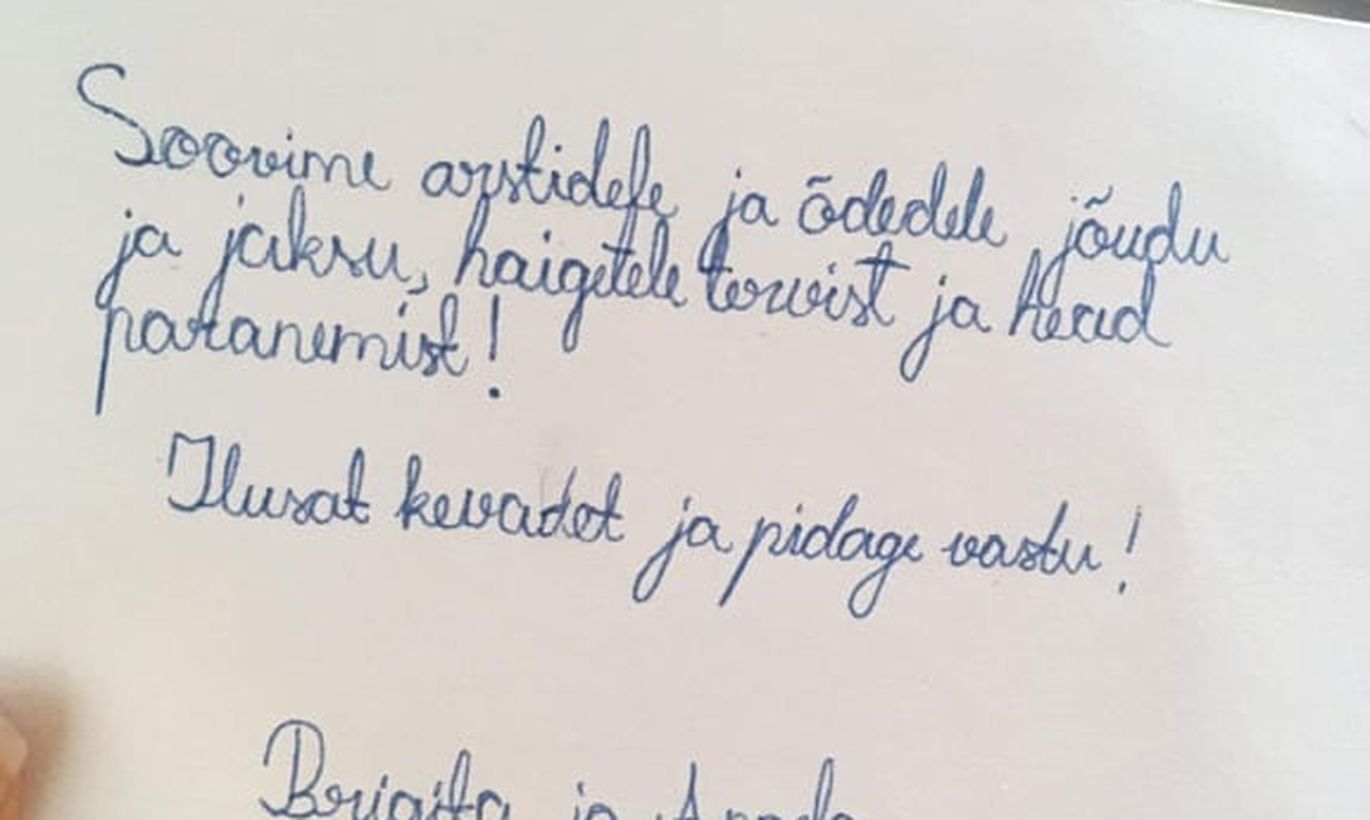 Soovime arstidele ja õdedele jõudu
ja jaksu, haigetele tervist ja head
paranemist!
Ilusat kevadet ja pidage vastu!
Brigita ja